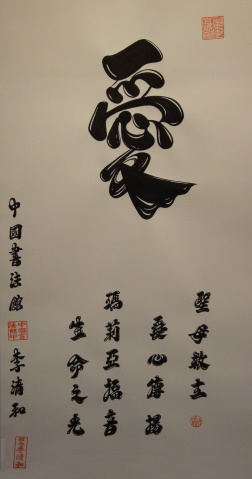 愛
聖母救主
長心傳揚
瑪莉亞福音
生命之光
中國書法館
李清和